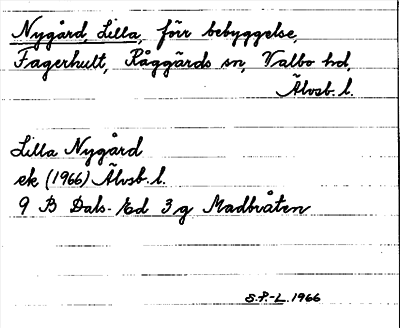 Nygård, Lilla, förr bebyggelse,
Fagerhult, Råggärds sn, Valbo hd,
Älvsb. l.
Lilla Nygård
ek (1966) Älvsb. l.
9 B Dals-Ed 3 g Madbråten
S.P.-L. 1966